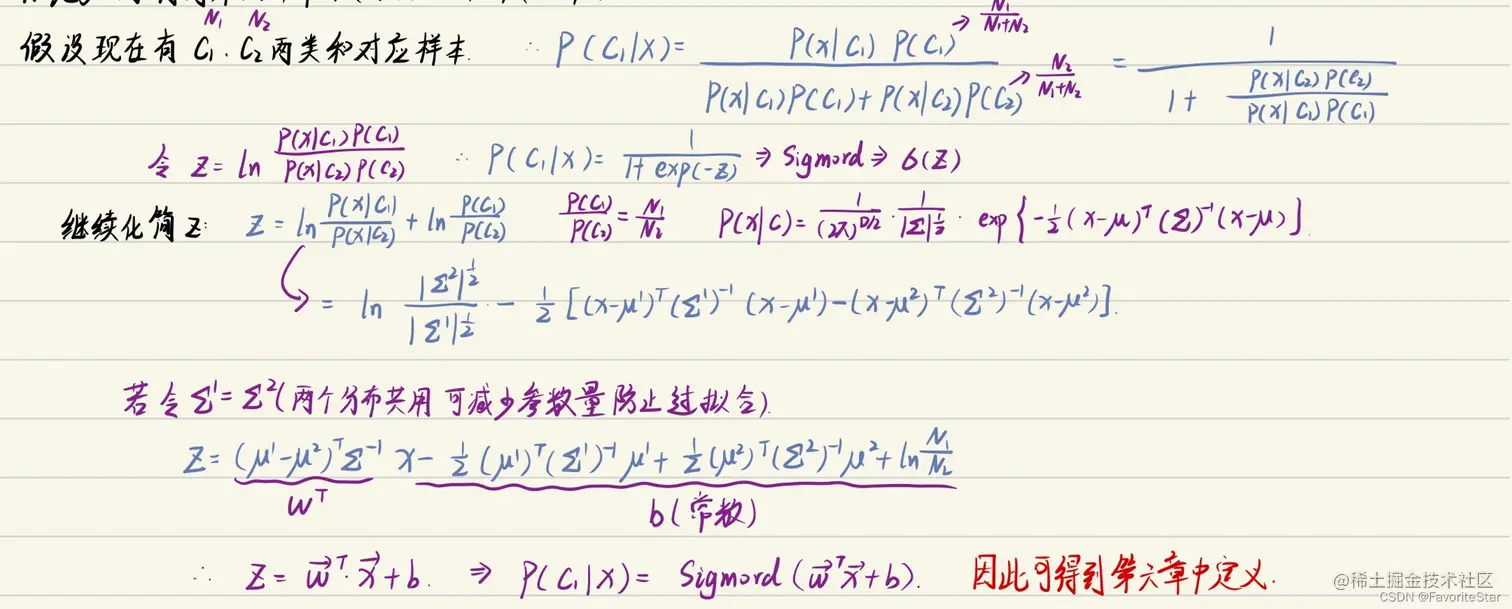 N₁ N₂
假设现在有 C₁. C₂ 两类和对应样本. ∴ P(C₁|x) = \frac{P(x|C₁) P(C₁)}{P(x|C₁)P(C₁) + P(x|C₂)P(C₂)} = \frac{1}{1 + \frac{P(x|C₂)P(C₂)}{P(x|C₁)P(C₁)}} → \frac{N₁}{N₁+N₂} → \frac{N₂}{N₁+N₂}
令 Z = ln \frac{P(x|C₁)P(C₁)}{P(x|C₂)P(C₂)} ∴ P(C₁|x) = \frac{1}{1+ exp(-Z)} ⇒ Sigmord ⇒ 6(Z)
继续化简 Z: Z = ln \frac{P(x|C₁)}{P(x|C₂)} + ln \frac{P(C₁)}{P(C₂)} \frac{P(C₁)}{P(C₂)} = \frac{N₁}{N₂} P(x|C) = \frac{1}{(2π)^{D/2}} · \frac{1}{|Σ|^{\frac{1}{2}}} · exp{-\frac{1}{2}(x-μ)^T (Σ)^{-1} (x-μ)}.
= ln \frac{|Σ²|^{\frac{1}{2}}}{|Σ¹|^{\frac{1}{2}}} - \frac{1}{2} [(x-μ¹)^T (Σ¹)^{-1} (x-μ¹) - (x-μ²)^T (Σ²)^{-1} (x-μ²)].
若令 Σ¹ = Σ² (两个分布共用 可减少参数量 防止过拟合).
Z = (μ¹-μ²)^T Σ^{-1} x - \frac{1}{2} (μ¹)^T (Σ¹)^{-1} μ¹ + \frac{1}{2} (μ²)^T (Σ²)^{-1} μ² + ln \frac{N₁}{N₂}
W^T b (常数)
∴ Z = \vec{w}^T · \vec{x} + b. ⇒ P(C₁|x) = Sigmord (\vec{w}^T \vec{x} + b). 因此可得到第六章中定义.
@稀土掘金技术社区
CSDN @FavoriteStar